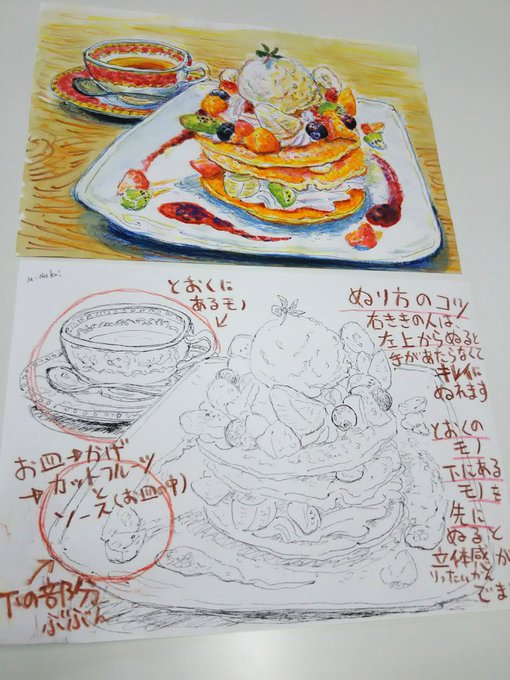 m-nakai
とおくに
あるモノ
ぬり方のコツ
右ききの人は、
左上からぬると
手があたらなくて
キレイに
ぬれます
とおくの
モノ
下にある
モノを
先に
ぬると
立体感が
りったいかん
でます
お皿→かげ
→カットフルーツ
と
ソース(お皿の中)
下の部分
ぶぶん